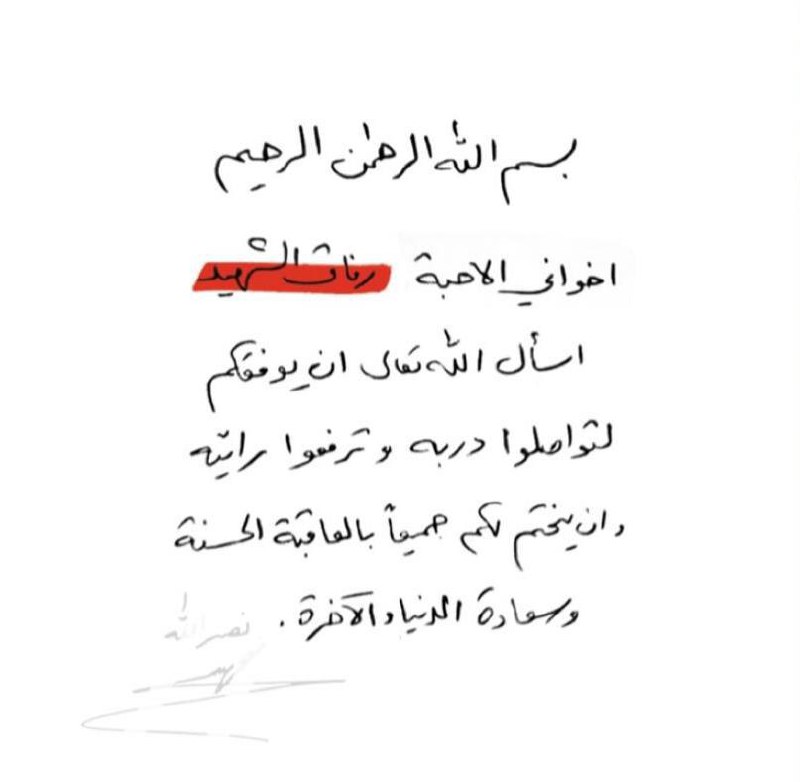 بسم الله الرحمن الرحيم
اخواني الاحبة رفاق الشهيد
اسأل الله تعالى ان يوفقكم
لتواصلوا دربه وترفعوا رايته
وان يختم لكم جميعاً بالعاقبة الحسنة
وسعادة الدنيا والآخرة .
نصر الله